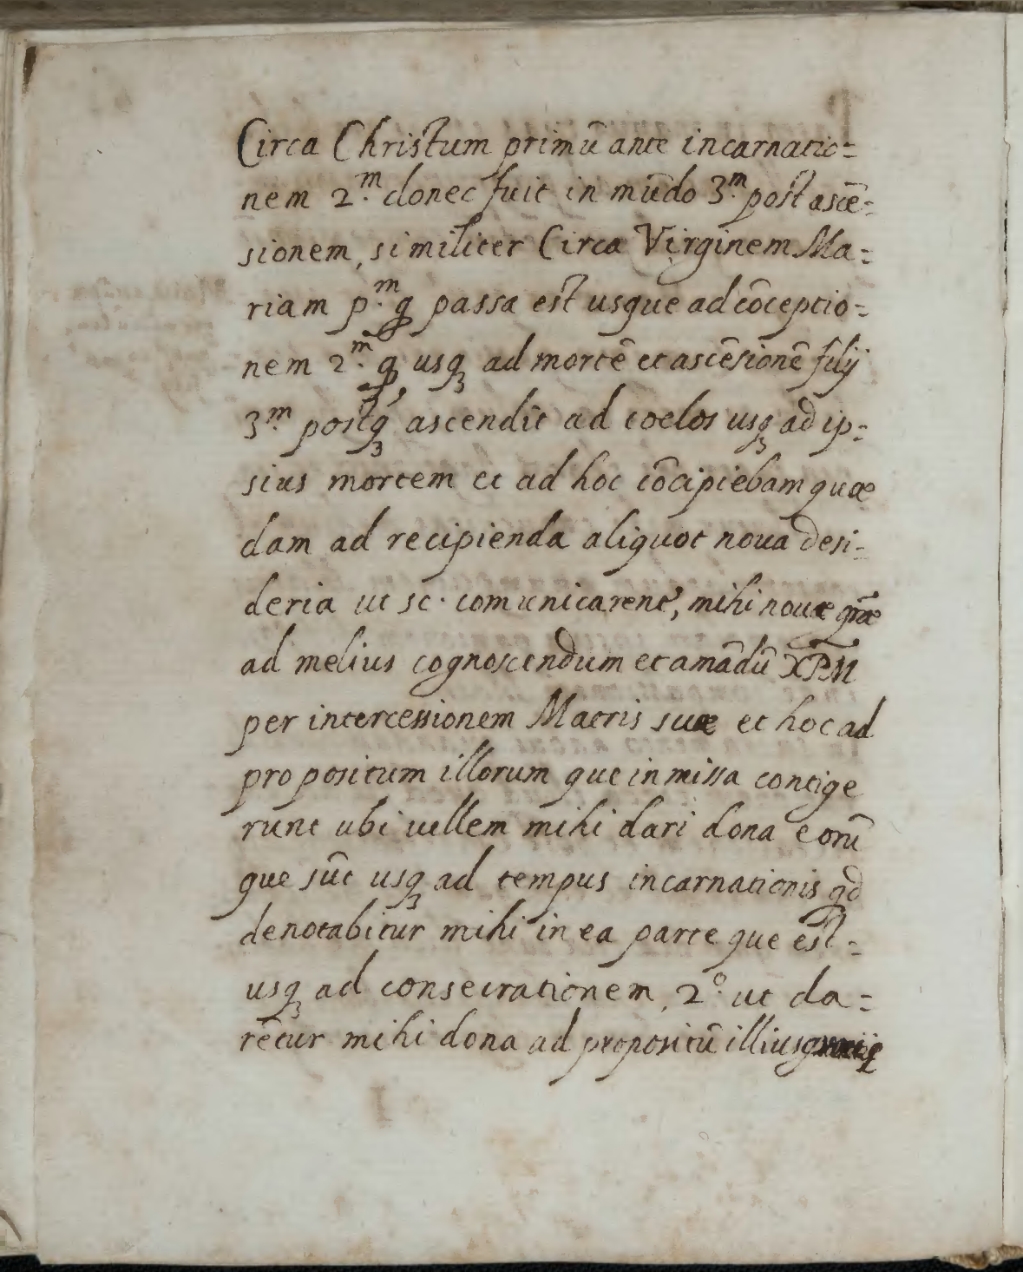 Circa Christum primū ante incarnatio=
nem 2.m donec fuit in mūdo 3.m post ascē=
sionem, similiter Circa Virginem Ma=
riam p.m q passa est usque ad cōceptio=
nem 2.m q usqꝫ ad mortē et ascēsionē filij
3.m postqꝫ ascendit ad coelos usqꝫ ad ip=
sius mortem et ad hoc cōcipiebam quæ
dam ad recipienda aliquot noua desi=
deria ut sc. comunicarent, mihi nouæ grāæ
ad melius cognoscendum et amādū XPM
per intercessionem Matris suæ et hoc ad
propositum illorum que in missa contige
runt ubi uellem mihi dari dona eorū
que sūt usqꝫ ad tempus incarnationis qd
denotabitur mihi in ea parte que est=
usqꝫ ad consecrationem, 2.o ut da=
rētur mihi dona ad propositū illius